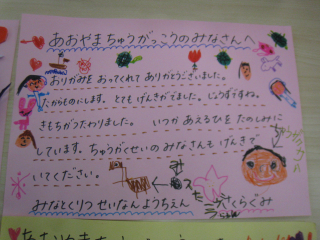 あおやまちゅうがっこうのみなさんへ
おりがみをおってくれてありがとうございました。
たからものにします。とてもげんきがでました。じょうずですね。
きもちがつたわりました。いつかあえるひをたのしみに
しています。ちゅうがくせいのみなさんもげんきで
いてください。
みなとくりつせいなんようちえん
さくらぐみ